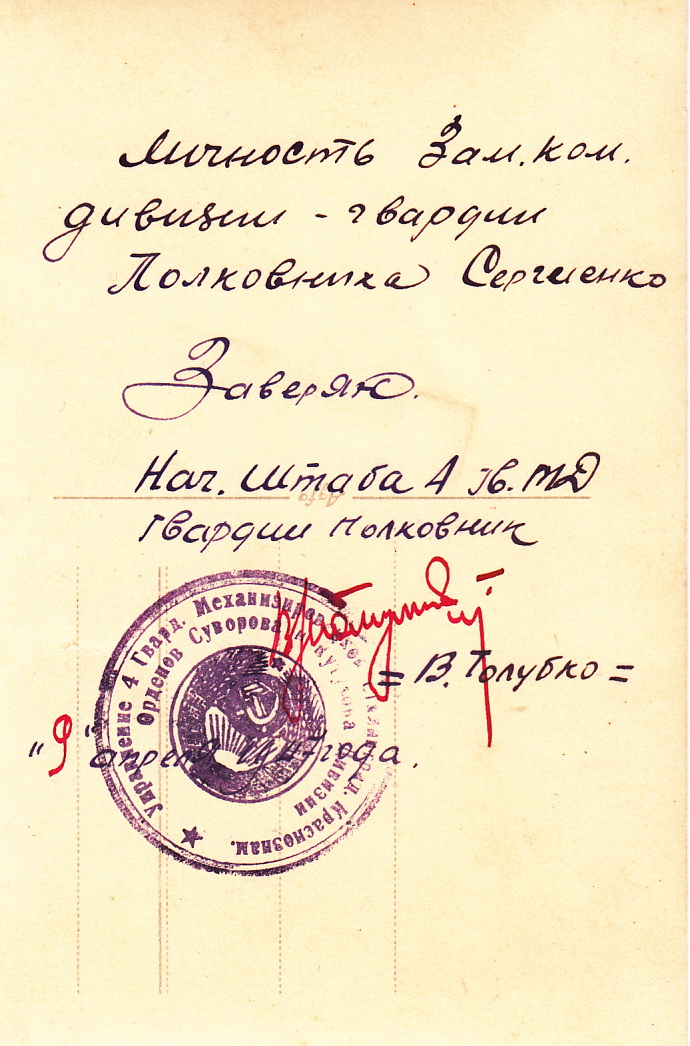 Личность Зам. ком.
дивизии - гвардии
Полковника Сергиенко
Заверяю.
Нач. штаба 4 гв. МД
Гвардии полковник
= В. Голубко =
"9" апреля 1947 года.
Управление 4 Гвард. Механизиров. Сталинград. Краснознам.
Орденов Суворова и Кутузова дивизии
Agfa